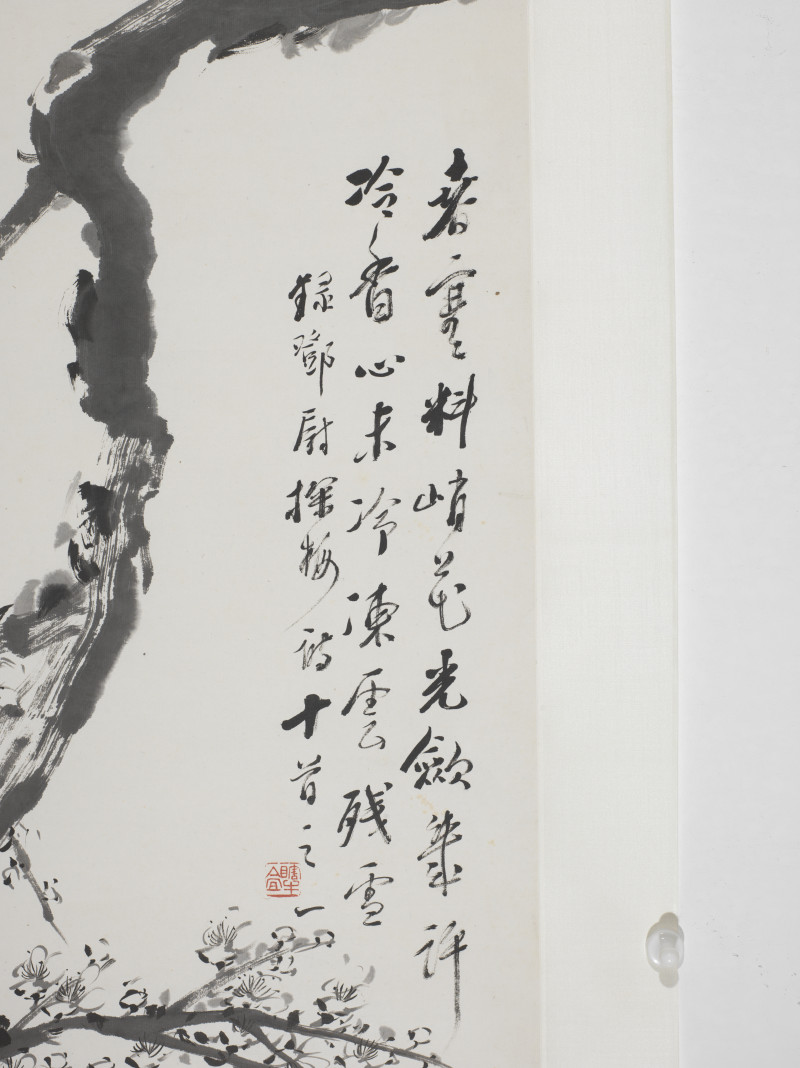 春寒料峭花光歛幾許
冷香心未冷凍雲殘雪
録鄧尉探梅詩十首之一